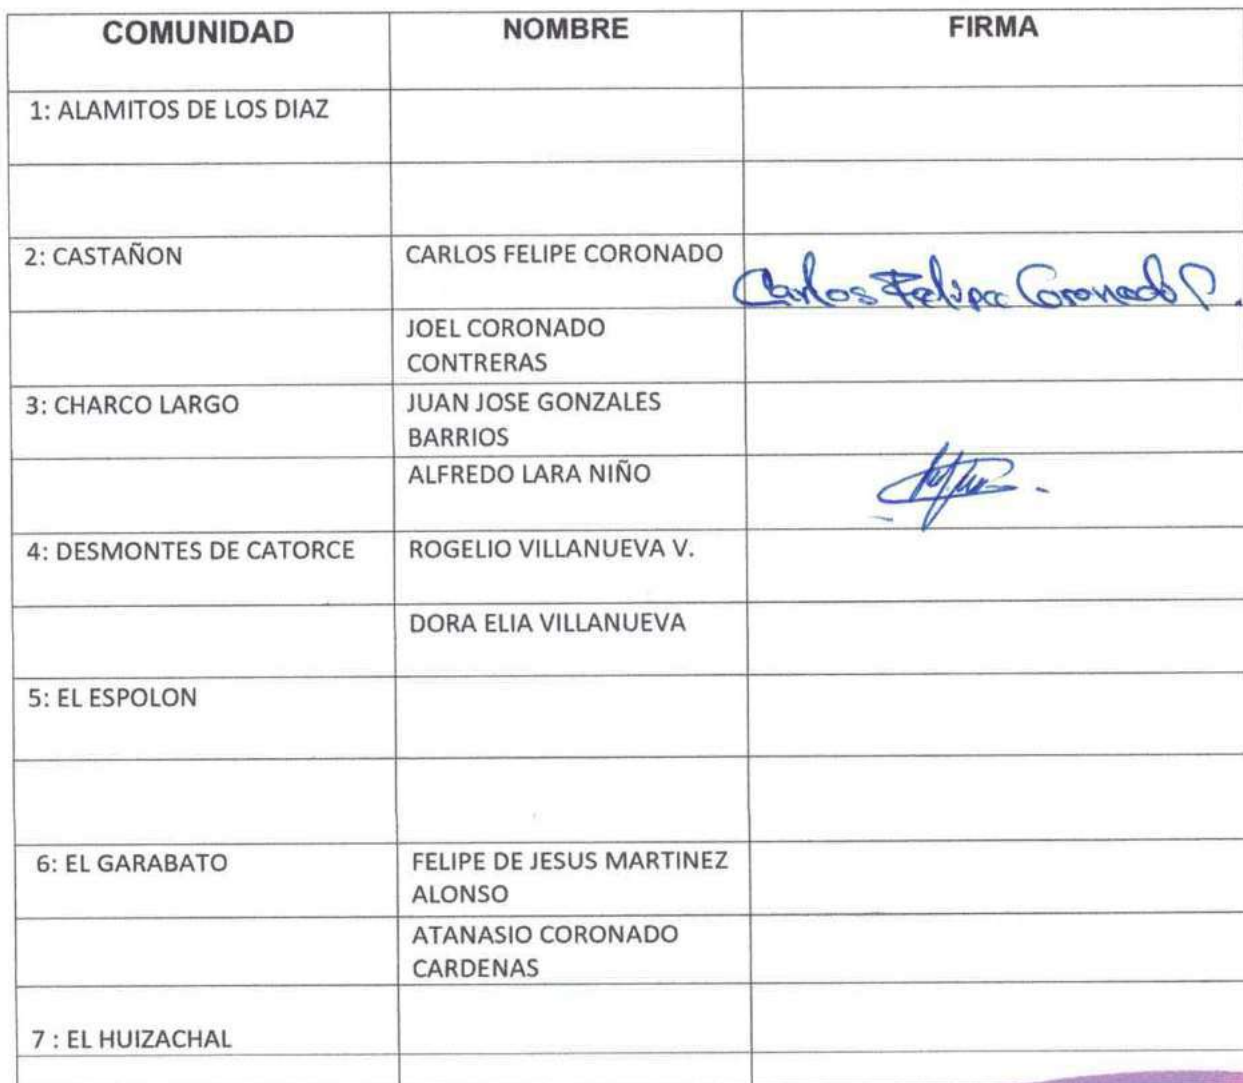 COMUNIDAD NOMBRE FIRMA
1: ALAMITOS DE LOS DIAZ
2: CASTAÑON CARLOS FELIPE CORONADO Carlos Felipe Coronado
JOEL CORONADO
CONTRERAS
3: CHARCO LARGO JUAN JOSE GONZALES
BARRIOS
ALFREDO LARA NIÑO
4: DESMONTES DE CATORCE ROGELIO VILLANUEVA V.
DORA ELIA VILLANUEVA
5: EL ESPOLON
6: EL GARABATO FELIPE DE JESUS MARTINEZ
ALONSO
ATANASIO CORONADO
CARDENAS
7 : EL HUIZACHAL